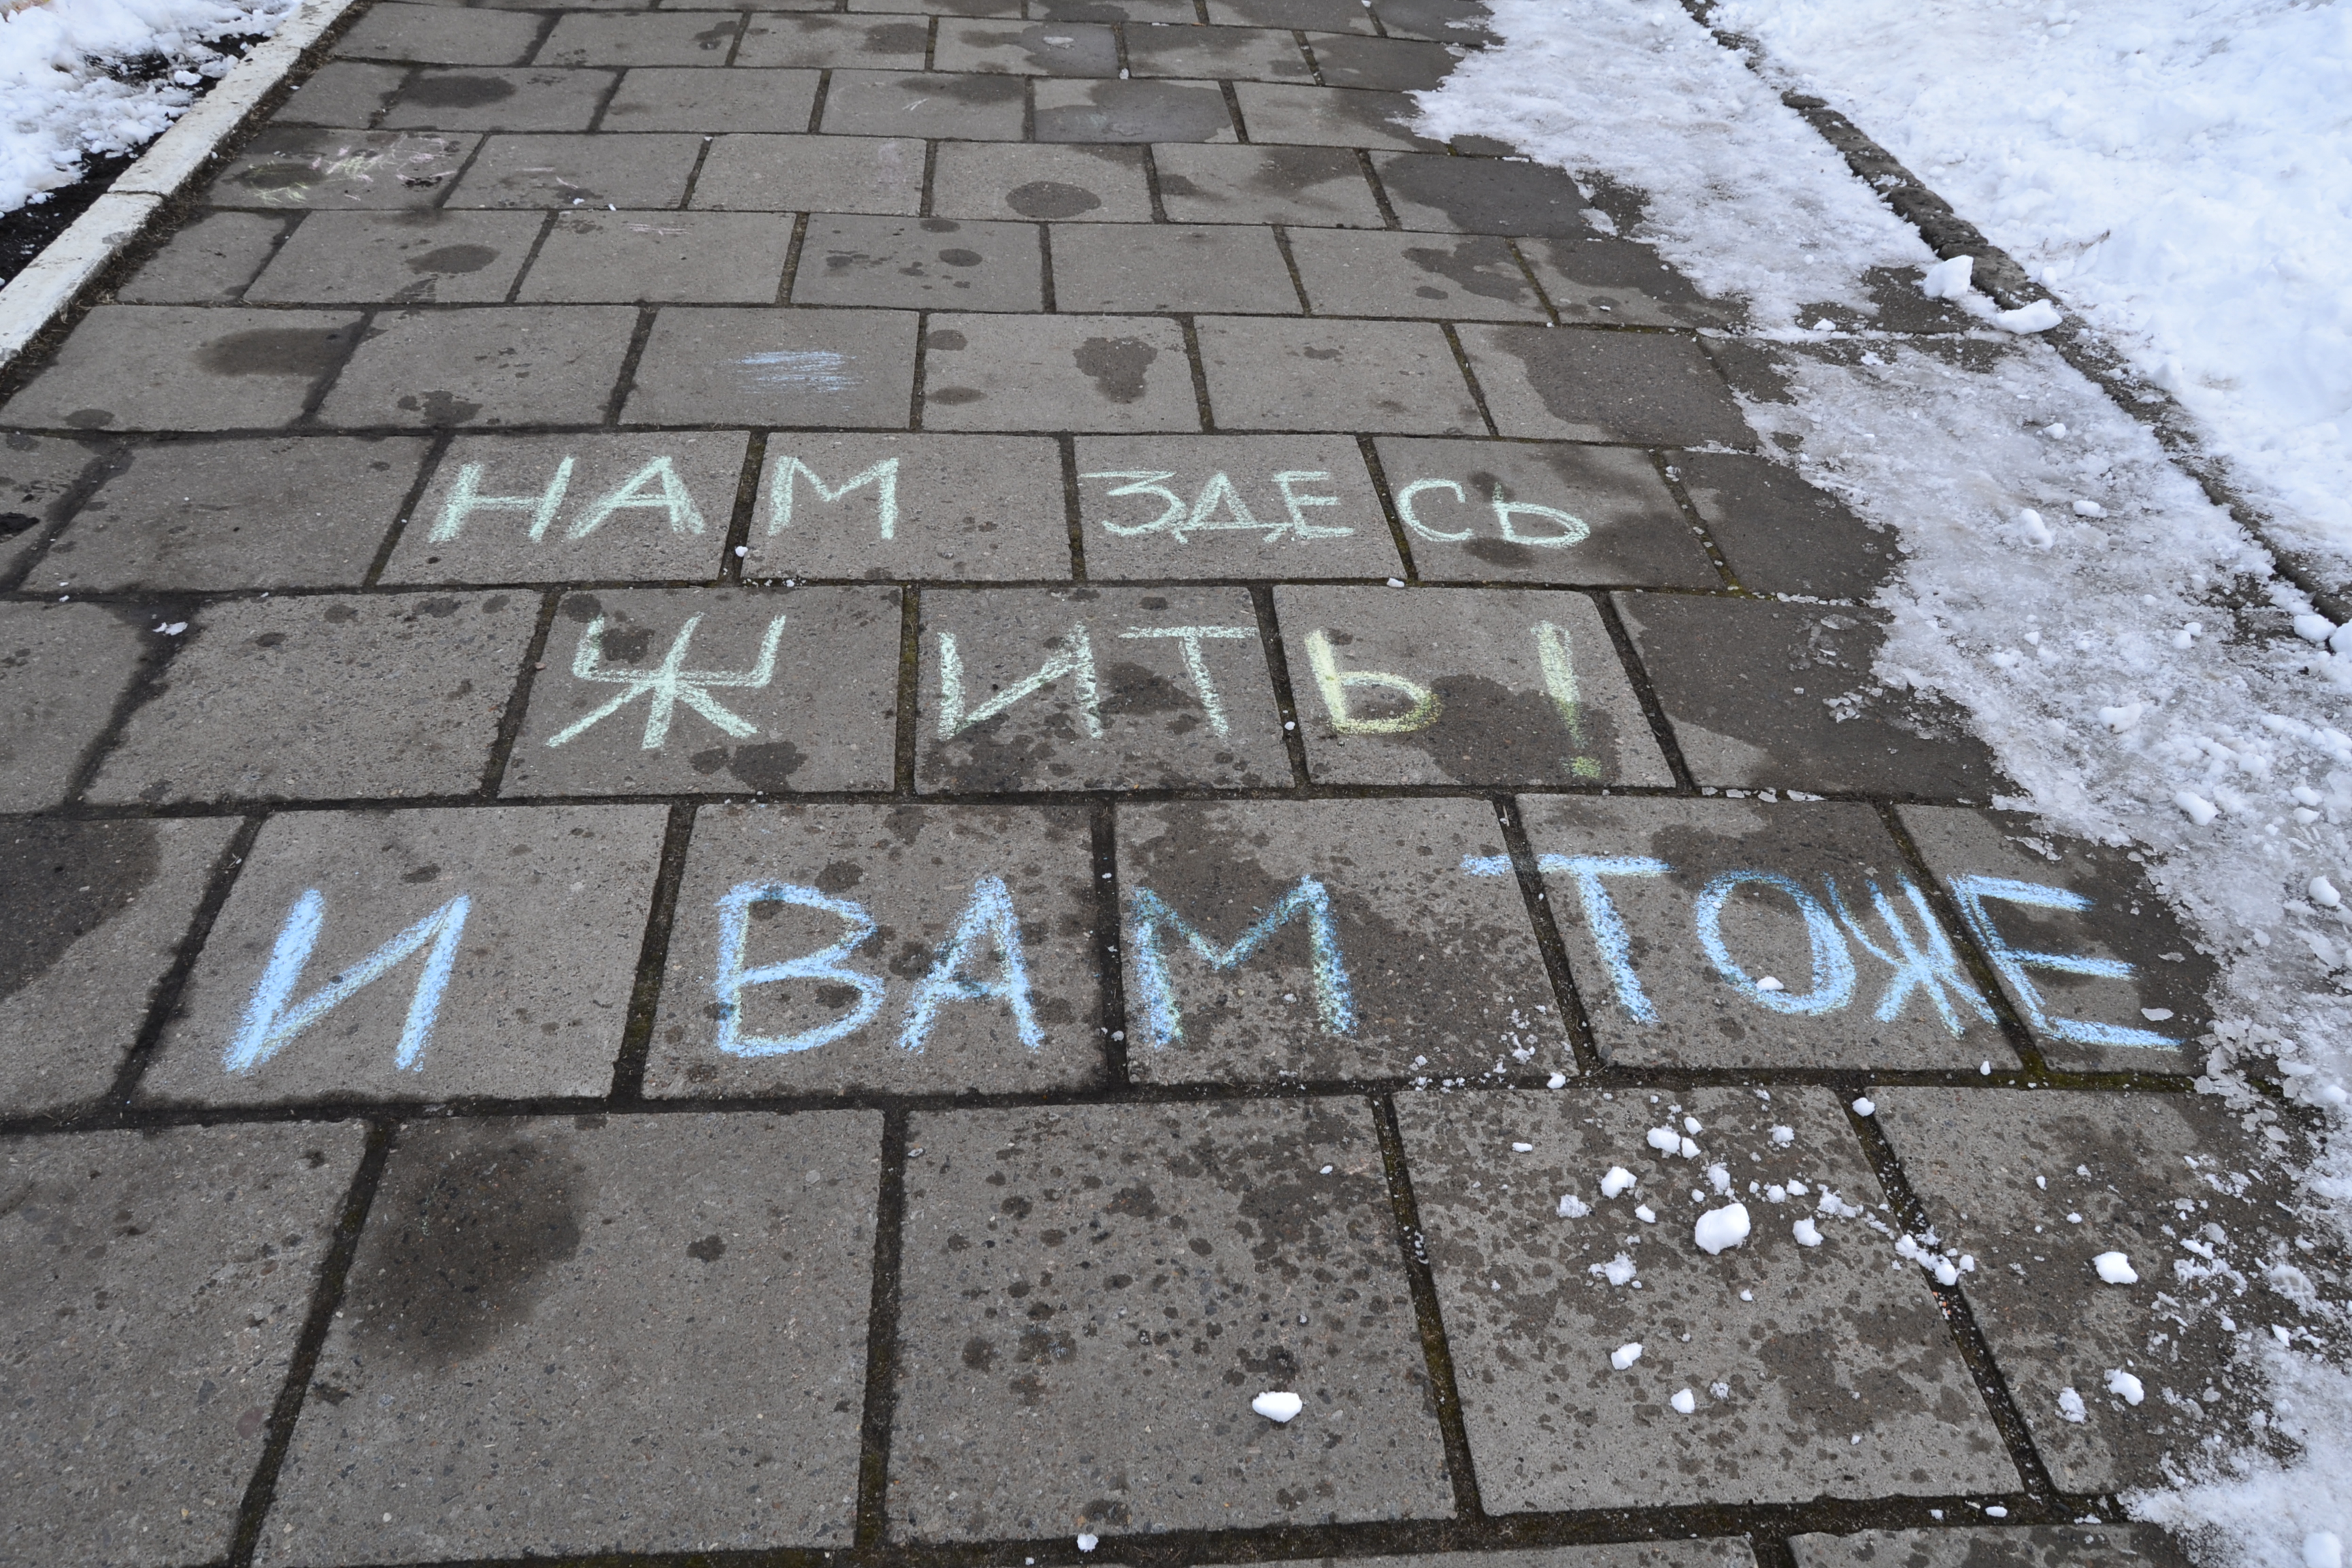 НАМ ЗДЕСЬ
ЖИТЬ!
И ВАМ ТОЖЕ